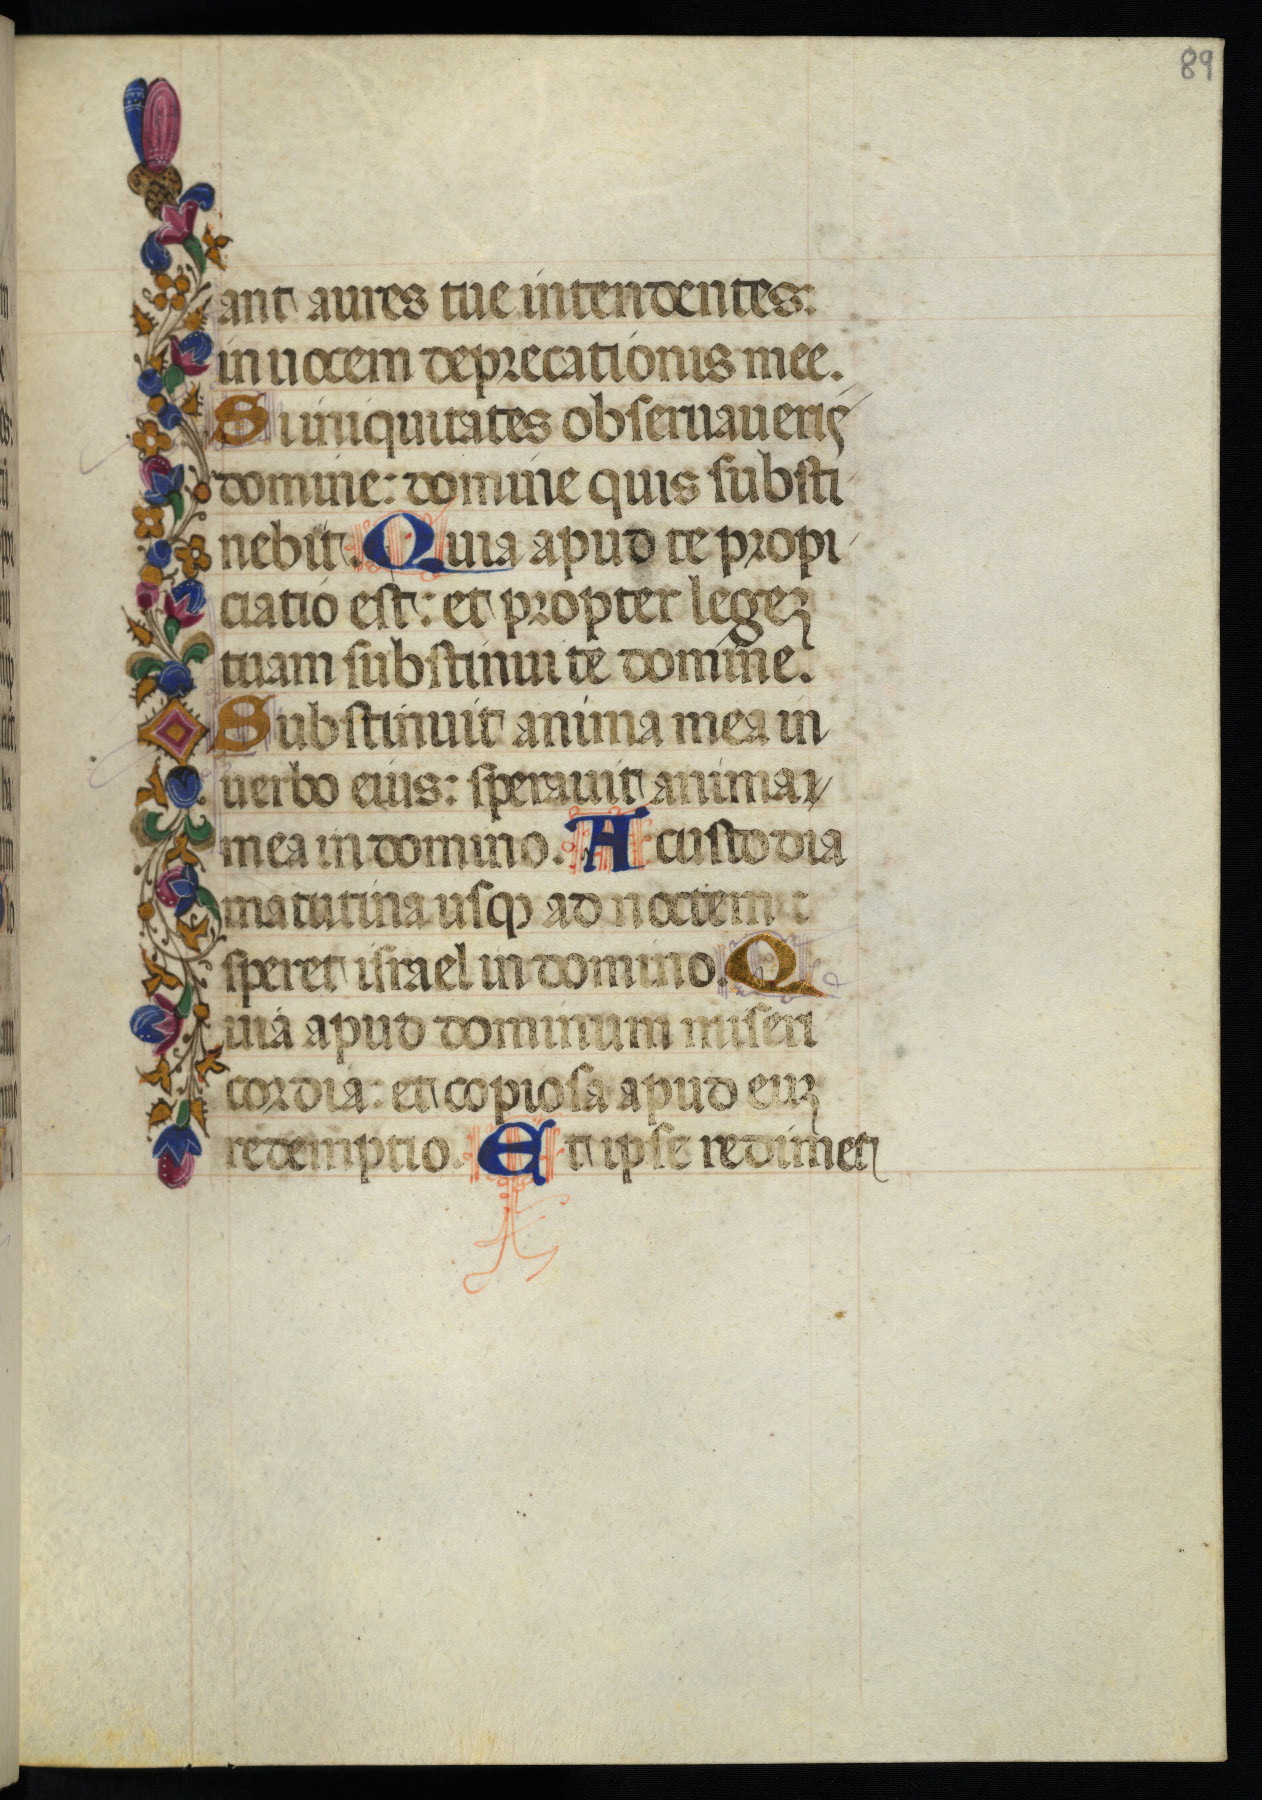 89
ant aures tue intendentes:
in uocem deprecationis mee.
Si iniquitates obseruaueris
domine: domine quis substi
nebit. Quia apud te propi
ciatio est: et propter legeʒ
tuam substinui te domine.
Substinuit anima mea in
uerbo eius: sperauit anima
mea in domino. A custodia
matutina usqꝫ ad noctem:
speret israel in domino. Q
uia apud dominum miseri
cordia: et copiosa apud euʒ
redemptio. Et ipse redimet